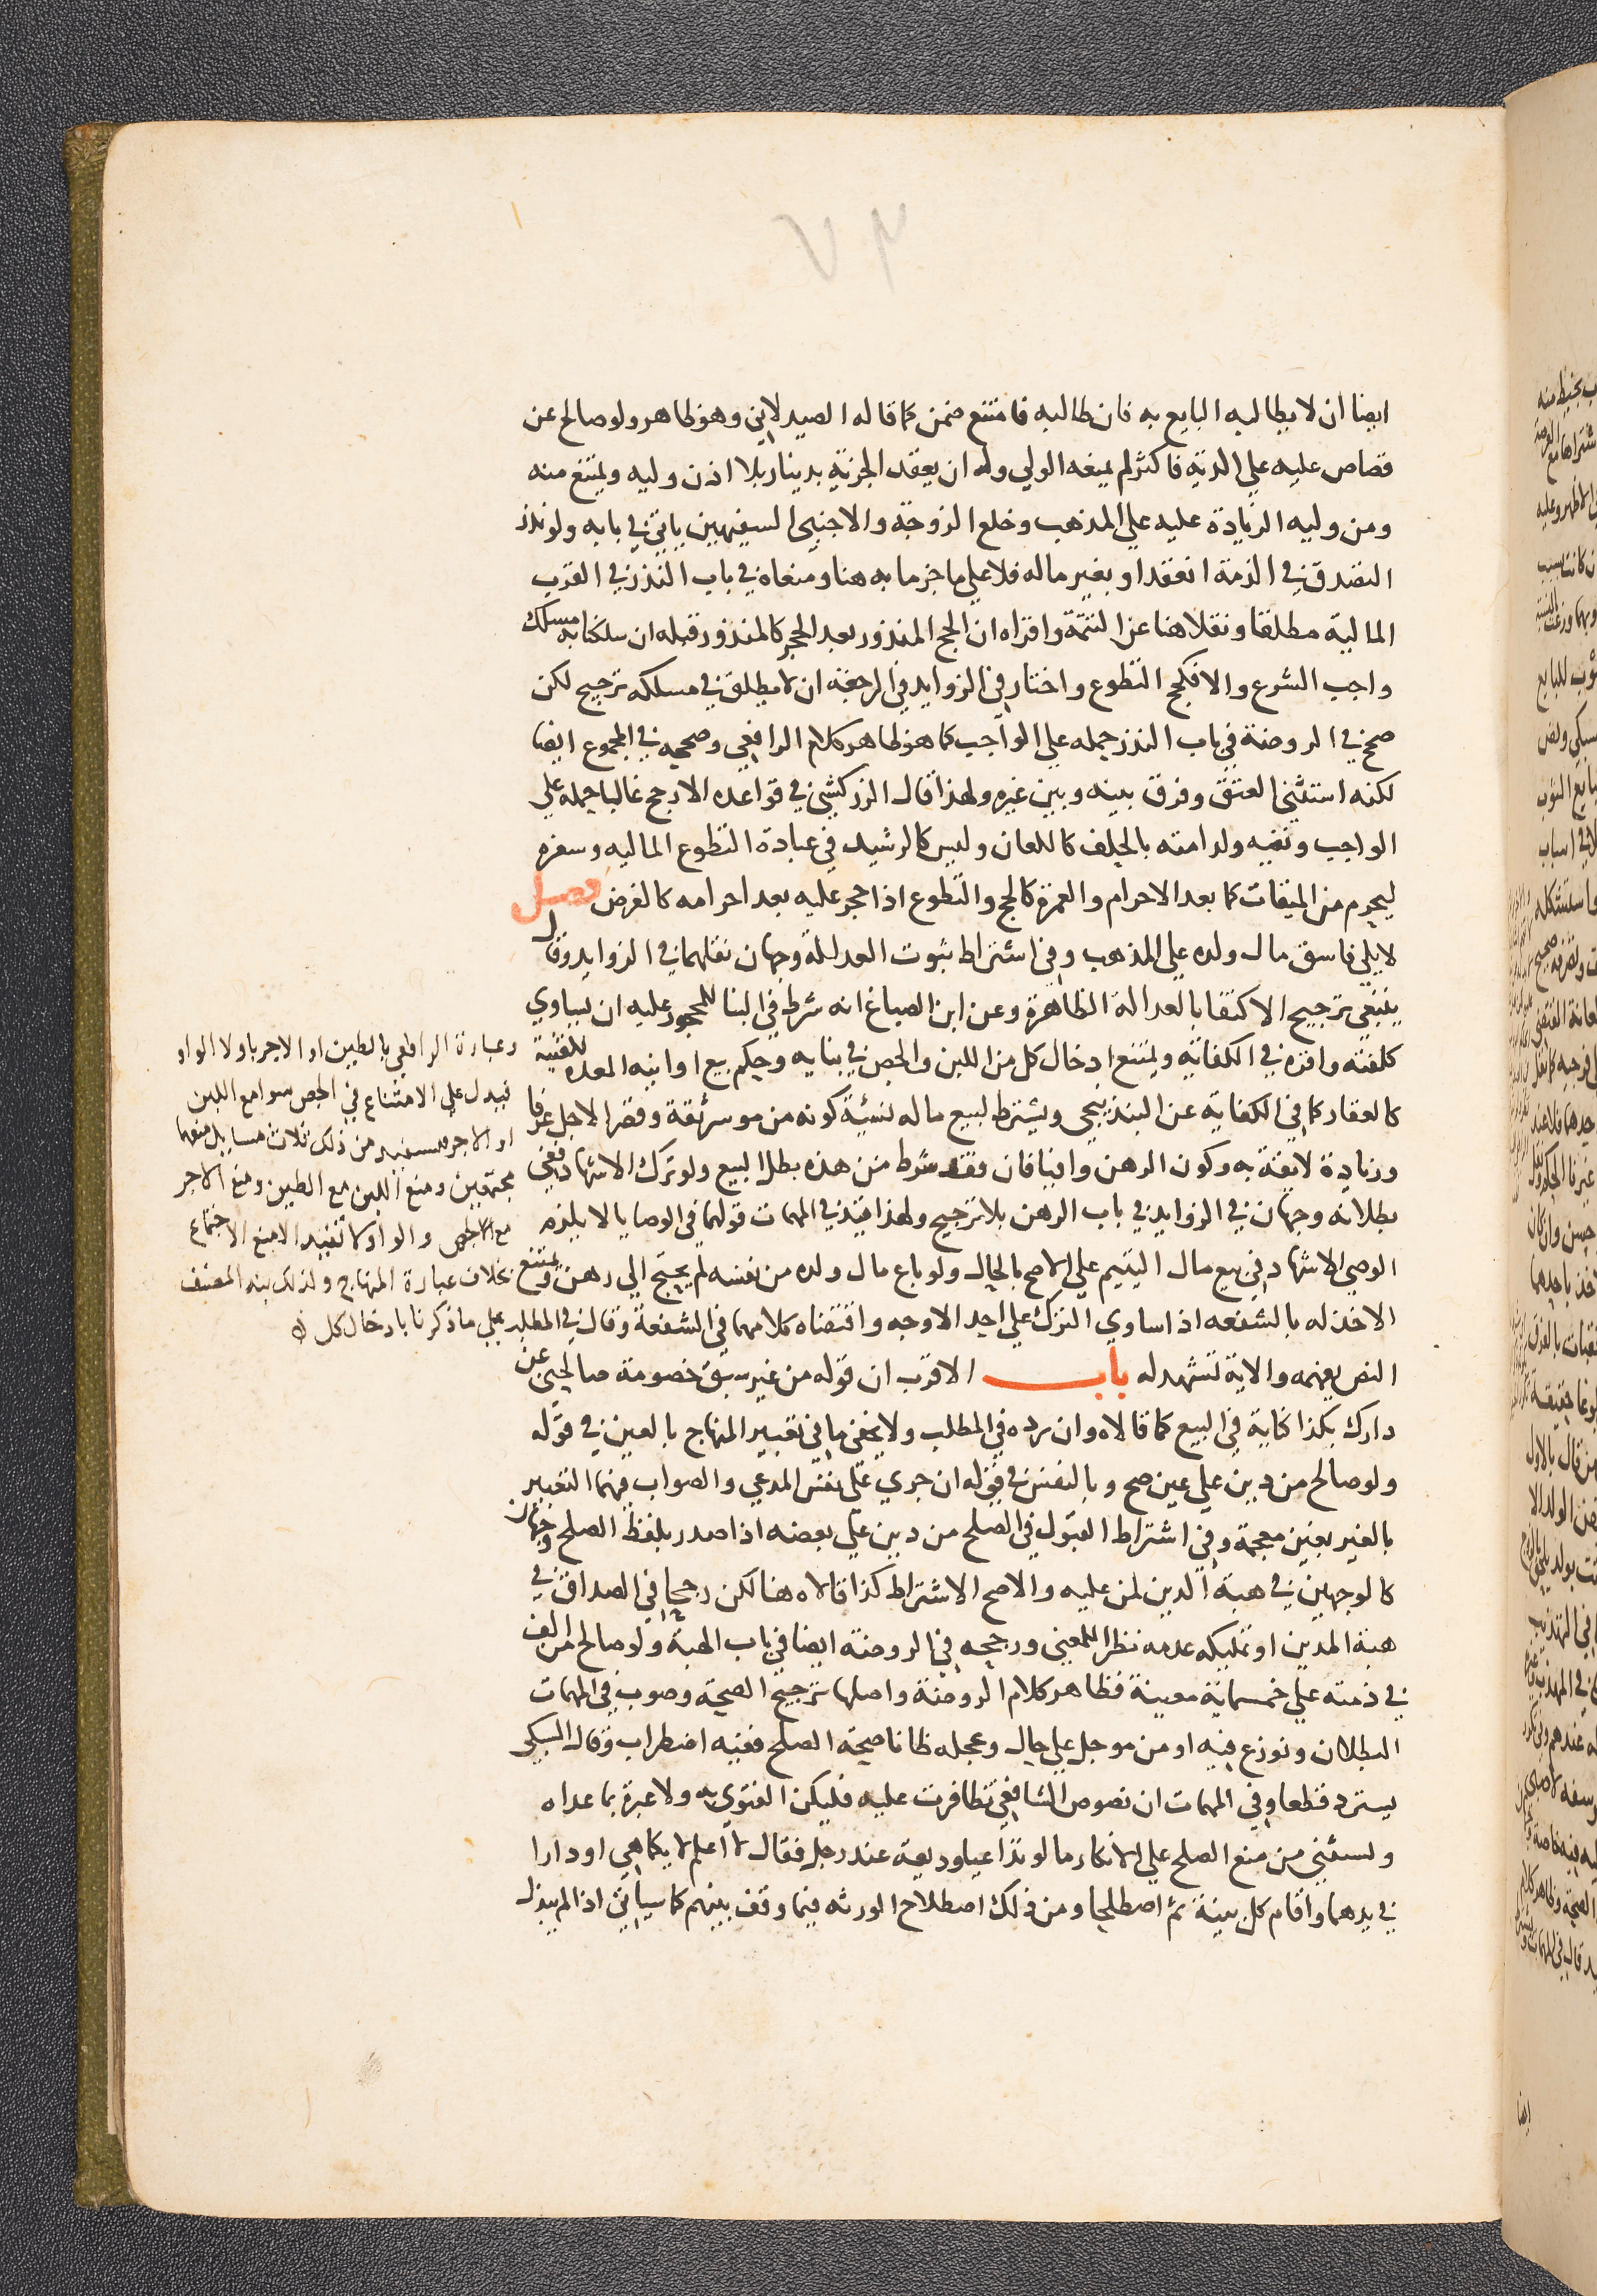 ٧٣
ايضا ان لا يطالبه البايع به فان طالبه فامتنع ضمن كما قاله الصيدلاني وهو ظاهر ولو صالح عن
قصاص عليه علي الدية فاكثر لم يمنعه الولي وله ان يعقد الجزية بدينار بلا اذن وليه ويمتنع منه
ومن وليه الزيادة عليه علي المذهب وخلع الزوجة والاجنبي السفيهين ياتي في بابه ولو نذر
التصدق في الذمة انعقد او بعين ماله فلا علي ما جزما به هنا ومنعاه في باب النذر في القرب
المالية مطلقا ونقلا هنا عن التتمة واقراه ان الحج المنذور بعد الحجر كالمنذور قبله ان سلكنا به مسلك
واجب الشرع والا فكحج التطوع واختار في الزوايد في الرجعة ان لا يطلق في مسلكه ترجيح لكن
صحح في الروضة في باب النذر حمله علي الواجب كما هو ظاهر كلام الرافعي وصححه في المجموع ايضا
لكنه استثني العتق وفرق بينه وبين غيره ولهذا قال الزركشي في قواعده الارجح غالبا حمله علي
الواجب ونفيه ولد امته بالحلف كاللعان وليس كالرشيد في عبادة التطوع الماليه وسفره
ليحرم من الميقات كما بعد الاحرام والعمرة كالحج والتطوع اذا حجر عليه بعد احرامه كالفرض فصل
لا يلي فاسق مال ولده علي المذهب وفي اشتراط ثبوت العدالة وجهان نقلهما في الزوايد وقال
ينبغي ترجيح الاكتفا بالعدالة الظاهرة وعن ابن الصباغ انه شرط في البنا للمحجور عليه ان يساوي
كلفته واقره في الكفاية ويمتنع ادخال كل من اللبن والجص في بنايه وحكم بيع اوانيه المعده للقنية
كالعقار كما في الكفاية عن البندنيجي ويشترط لبيع ماله نسئية كونه من موسر ثقة وقصر الاجل عرفا
وزيادة لايقة به وكون الرهن وافيا فان فقد شرط من هذه بطل البيع ولو ترك الاشهاد ففي
بطلانه وجهان في الزوايد في باب الرهن بلا ترجيح ولهذا قيد في المهمات قولهما في الوصايا لا يلزم
الوصي الاشهاد في بيع مال اليتيم علي الاصح بالحال ولو باع مال ولده من نفسه لم يحتج الي رهن ويمتنع
الاخذ له بالشفعه اذا ساوي الترك علي احد الاوجه واقتضاه كلامهما في الشفعة وقال في المطلب
النص يفهمه والاية تشهد له باب الاقرب ان قوله من غير سبق خصومة صالحني عن
دارك بكذا كناية في البيع كما قالاه وان رده في المطلب ولا يخفي ما في تعبير المنهاج بالعين في قوله
ولو صالح من دين علي عين صح وبالنفس في قوله ان جري علي نفس المدعي والصواب فيهما التعبير
بالغير بغين معجمة وفي اشتراط القبول في الصلح من دين علي بعضه اذا صدر بلفظ الصلح وجهان
كالوجهين في هبة الدين لمن عليه والاصح الاشتراط كذا قالاه هنا لكن رجحا في الصداق في
هبة المدين او تمليكه عدمه نظرا للمعني ورجحه في الروضة ايضا في باب الهبة ولو صالح من الف
في ذمته علي خمسماية معينة فظاهر كلام الروضة واصلها ترجيح الصحة وصوب في المهمات
البطلان ونوزع فيه او من موجل علي حال وعجله ظانا صحة الصلح ففيه اضطراب وقال السبكي
يسترد قطعا وفي المهمات ان نصوص الشافعي تظافرت عليه فليكن الفتوي به ولا عبرة بما عداه
ويستثني من منع الصلح علي الانكار ما لو تداعيا وديعة عند رجل فقال لا اعلم لايكما هي او دارا
في يدهما واقام كل بينة ثم اصطلحا ومن ذلك اصطلاح الورثه فيما وقف بينهم كما سياتي اذا لم يبذل
وعبارة الرافعي بالطين او الاجر باو لا الواو
فيدل علي الامتناع في الجص سوا مع اللبن
او الاجر فيستفيد من ذلك ثلاث مسايل منعهما
مجتمعين ومنع اللبن مع الطين ومنع الاجر
مع الجص والواو لا تفيد الا منع الاجتماع
بخلاف عبارة المنهاج ولذلك نبه المصنف
علي ما ذكرنا بادخال كل